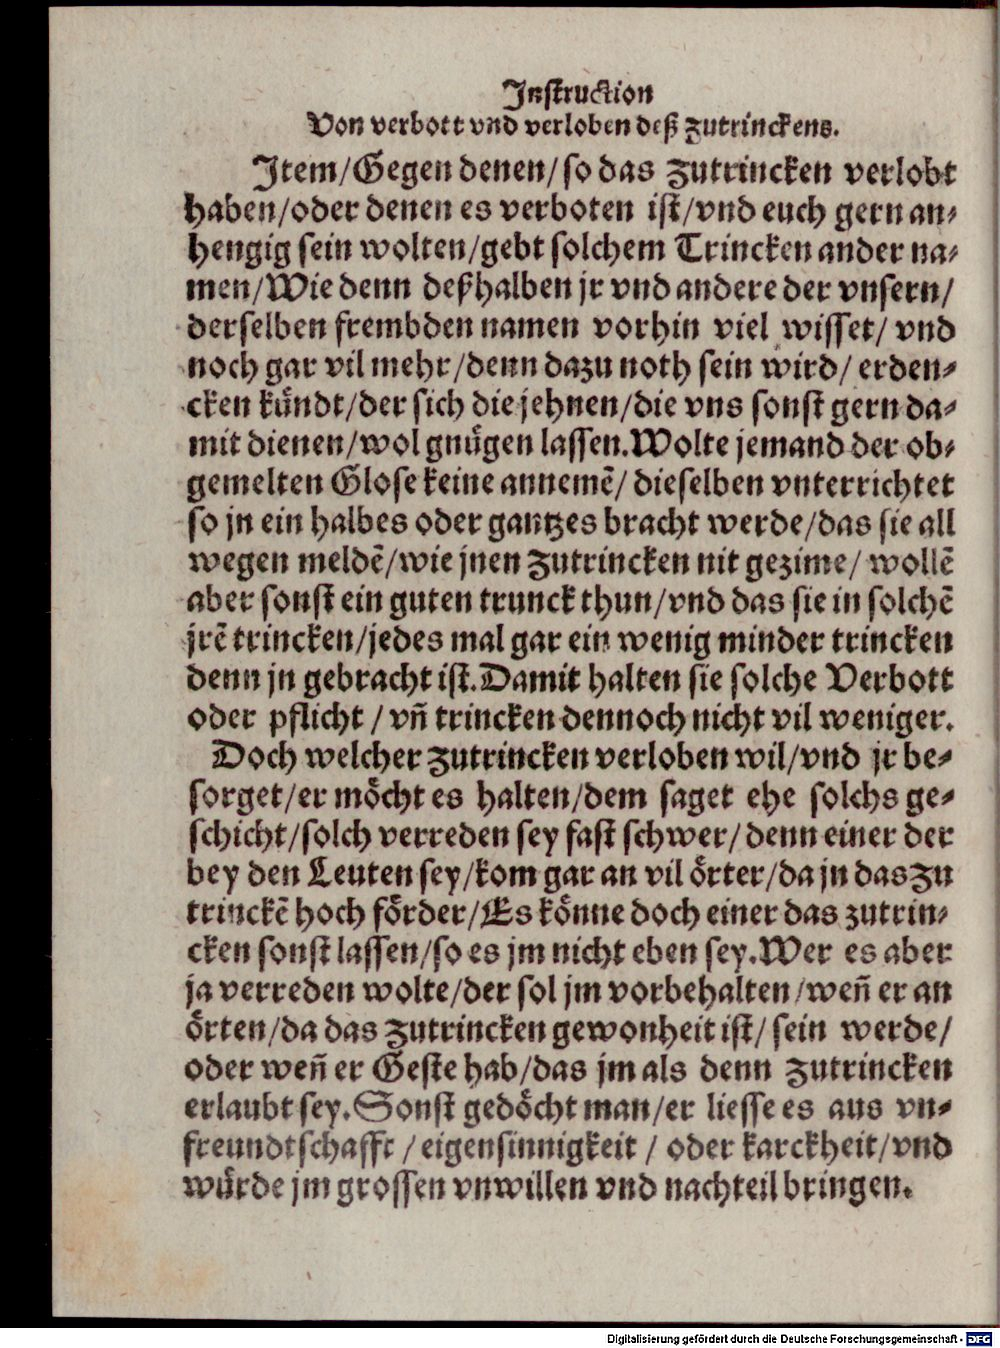 Jnstruction
Von verbott vnd verloben deß zutrinckens.
Jtem/Gegen denen/so das zutrincken verlobt
haben/oder denen es verboten ist/vnd euch gern an-
hengig sein wolten/gebt solchem Trincken ander na-
men/Wie denn deßhalben jr vnd andere der vnsern/
derselben frembden namen vorhin viel wisset/ vnd
noch gar vil mehr/denn dazu noth sein wird/ erden-
cken kündt/der sich die jehnen/die vns sonst gern da-
mit dienen/wol gnügen lassen.Wolte jemand der ob-
gemelten Glose keine annemẽ/ dieselben vnterrichtet
so jn ein halbes oder gantzes bracht werde/das sie all
wegen meldẽ/wie jnen zutrincken nit gezime/ wollẽ
aber sonst ein guten trunck thun/vnd das sie in solchẽ
jrẽ trincken/jedes mal gar ein wenig minder trincken
denn jn gebracht ist.Damit halten sie solche Verbott
oder pflicht / vñ trincken dennoch nicht vil weniger.
Doch welcher zutrincken verloben wil/vnd jr be-
sorget/er möcht es halten/dem saget ehe solchs ge-
schicht/solch verreden sey fast schwer/ denn einer der
bey den Leuten sey/kom gar an vil örter/da jn das zu
trinckẽ hoch förder/Es könne doch einer das zutrin-
cken sonst lassen/so es jm nicht eben sey.Wer es aber
ja verreden wolte/der sol jm vorbehalten/weñ er an
örten/da das zutrincken gewonheit ist/ sein werde/
oder weñ er Geste hab/das jm als denn zutrincken
erlaubt sey.Sonst gedöcht man/er liesse es aus vn-
freundtschafft / eigensinnigkeit / oder karckheit/vnd
würde jm grossen vnwillen vnd nachteil bringen.
Digitalisierung gefördert durch die Deutsche Forschungsgemeinschaft - DFG